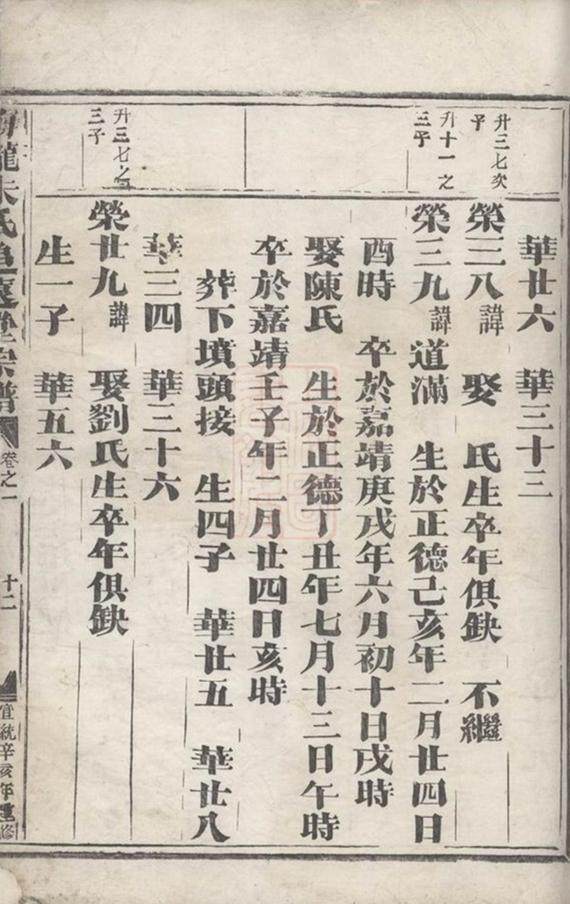 華廿六　華三十三
升三七次
子
榮三八諱　娶　氏生卒年俱缺　不繼
升十一之
三子
榮三九諱道滿　生於正德己亥年二月廿四日
酉時　卒於嘉靖庚戌年六月初十日戌時
娶陳氏　生於正德丁丑年七月十三日午時
卒於嘉靖壬子年二月廿四日亥時
葬下墳頭接　生四子　華廿五　華廿八
華三四　華三十六
升三七之
三子
榮廿九諱　娶劉氏生卒年俱缺
生一子　華五六
龍朱氏追遠堂宗譜　卷之一　十二　宣統辛亥年重修